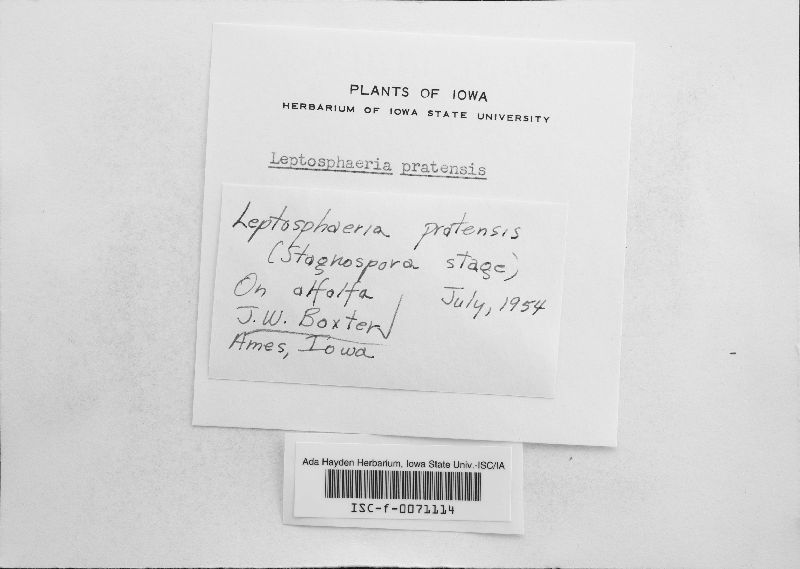 PLANTS OF IOWA
HERBARIUM OF IOWA STATE UNIVERSITY
Leptosphaeria pratensis
Leptosphaeria pratensis
(Stagnospora stage)
On alfalfa July, 1954
J.W. Baxter
Ames, Iowa
Ada Hayden Herbarium, Iowa State Univ.-ISC/IA
ISC-f-0071114